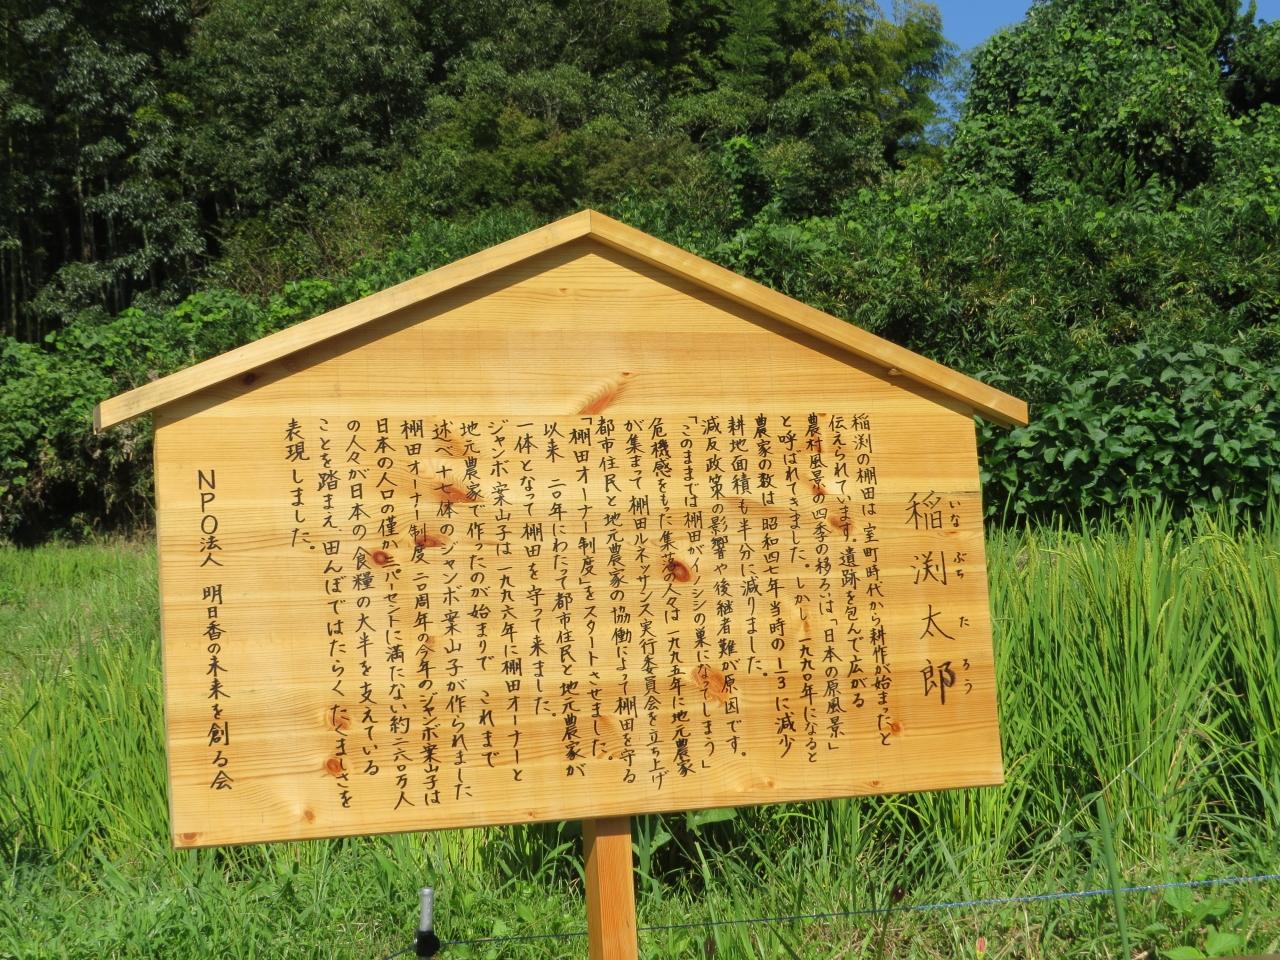 稲渕太郎
いな ぶち た ろう
稲渕の棚田は、室町時代から耕作が始まったと
伝えられています。遺跡を包んで広がる
農村風景の四季の移ろいは「日本の原風景」
と呼ばれてきました。しかし 一九九〇年になると
農家の数は 昭和四七年当時の 1-3 に減少
耕地面積も半分に減りました。
減反政策の影響や後継者難が原因です。
「このままでは棚田がイノシシの巣になってしまう」
危機感をもった集落の人々は 一九九五年に地元農家
が集まって 棚田ルネッサンス実行委員会を立ち上げ
都市住民と地元農家の協働によって棚田を守る
「棚田オーナー制度」をスタートさせました。
以来 二〇年にわたって都市住民と地元農家が
一体となって棚田を守って来ました。
ジャンボ案山子は 一九九六年に棚田オーナーと
地元農家で作ったのが始まりで これまで
述べ十七体のジャンボ案山子が作られました
棚田オーナー制度二〇周年の今年のジャンボ案山子は
日本の人口の僅か 二パーセントに満たない約二六〇万人
の人々が日本の食糧の大半を支えている
ことを踏まえ、田んぼではたらくたくましさを
表現しました。
NPO法人 明日香の未来を創る会